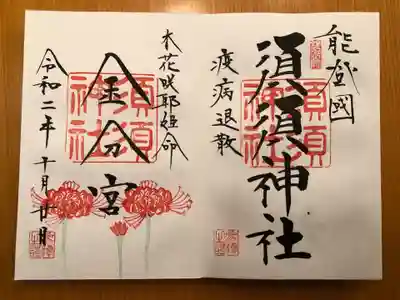 能登國
須須神社
疫病退散
須須神社
木花咲耶姫命
金分宮
須須神社
令和二年十月廿日